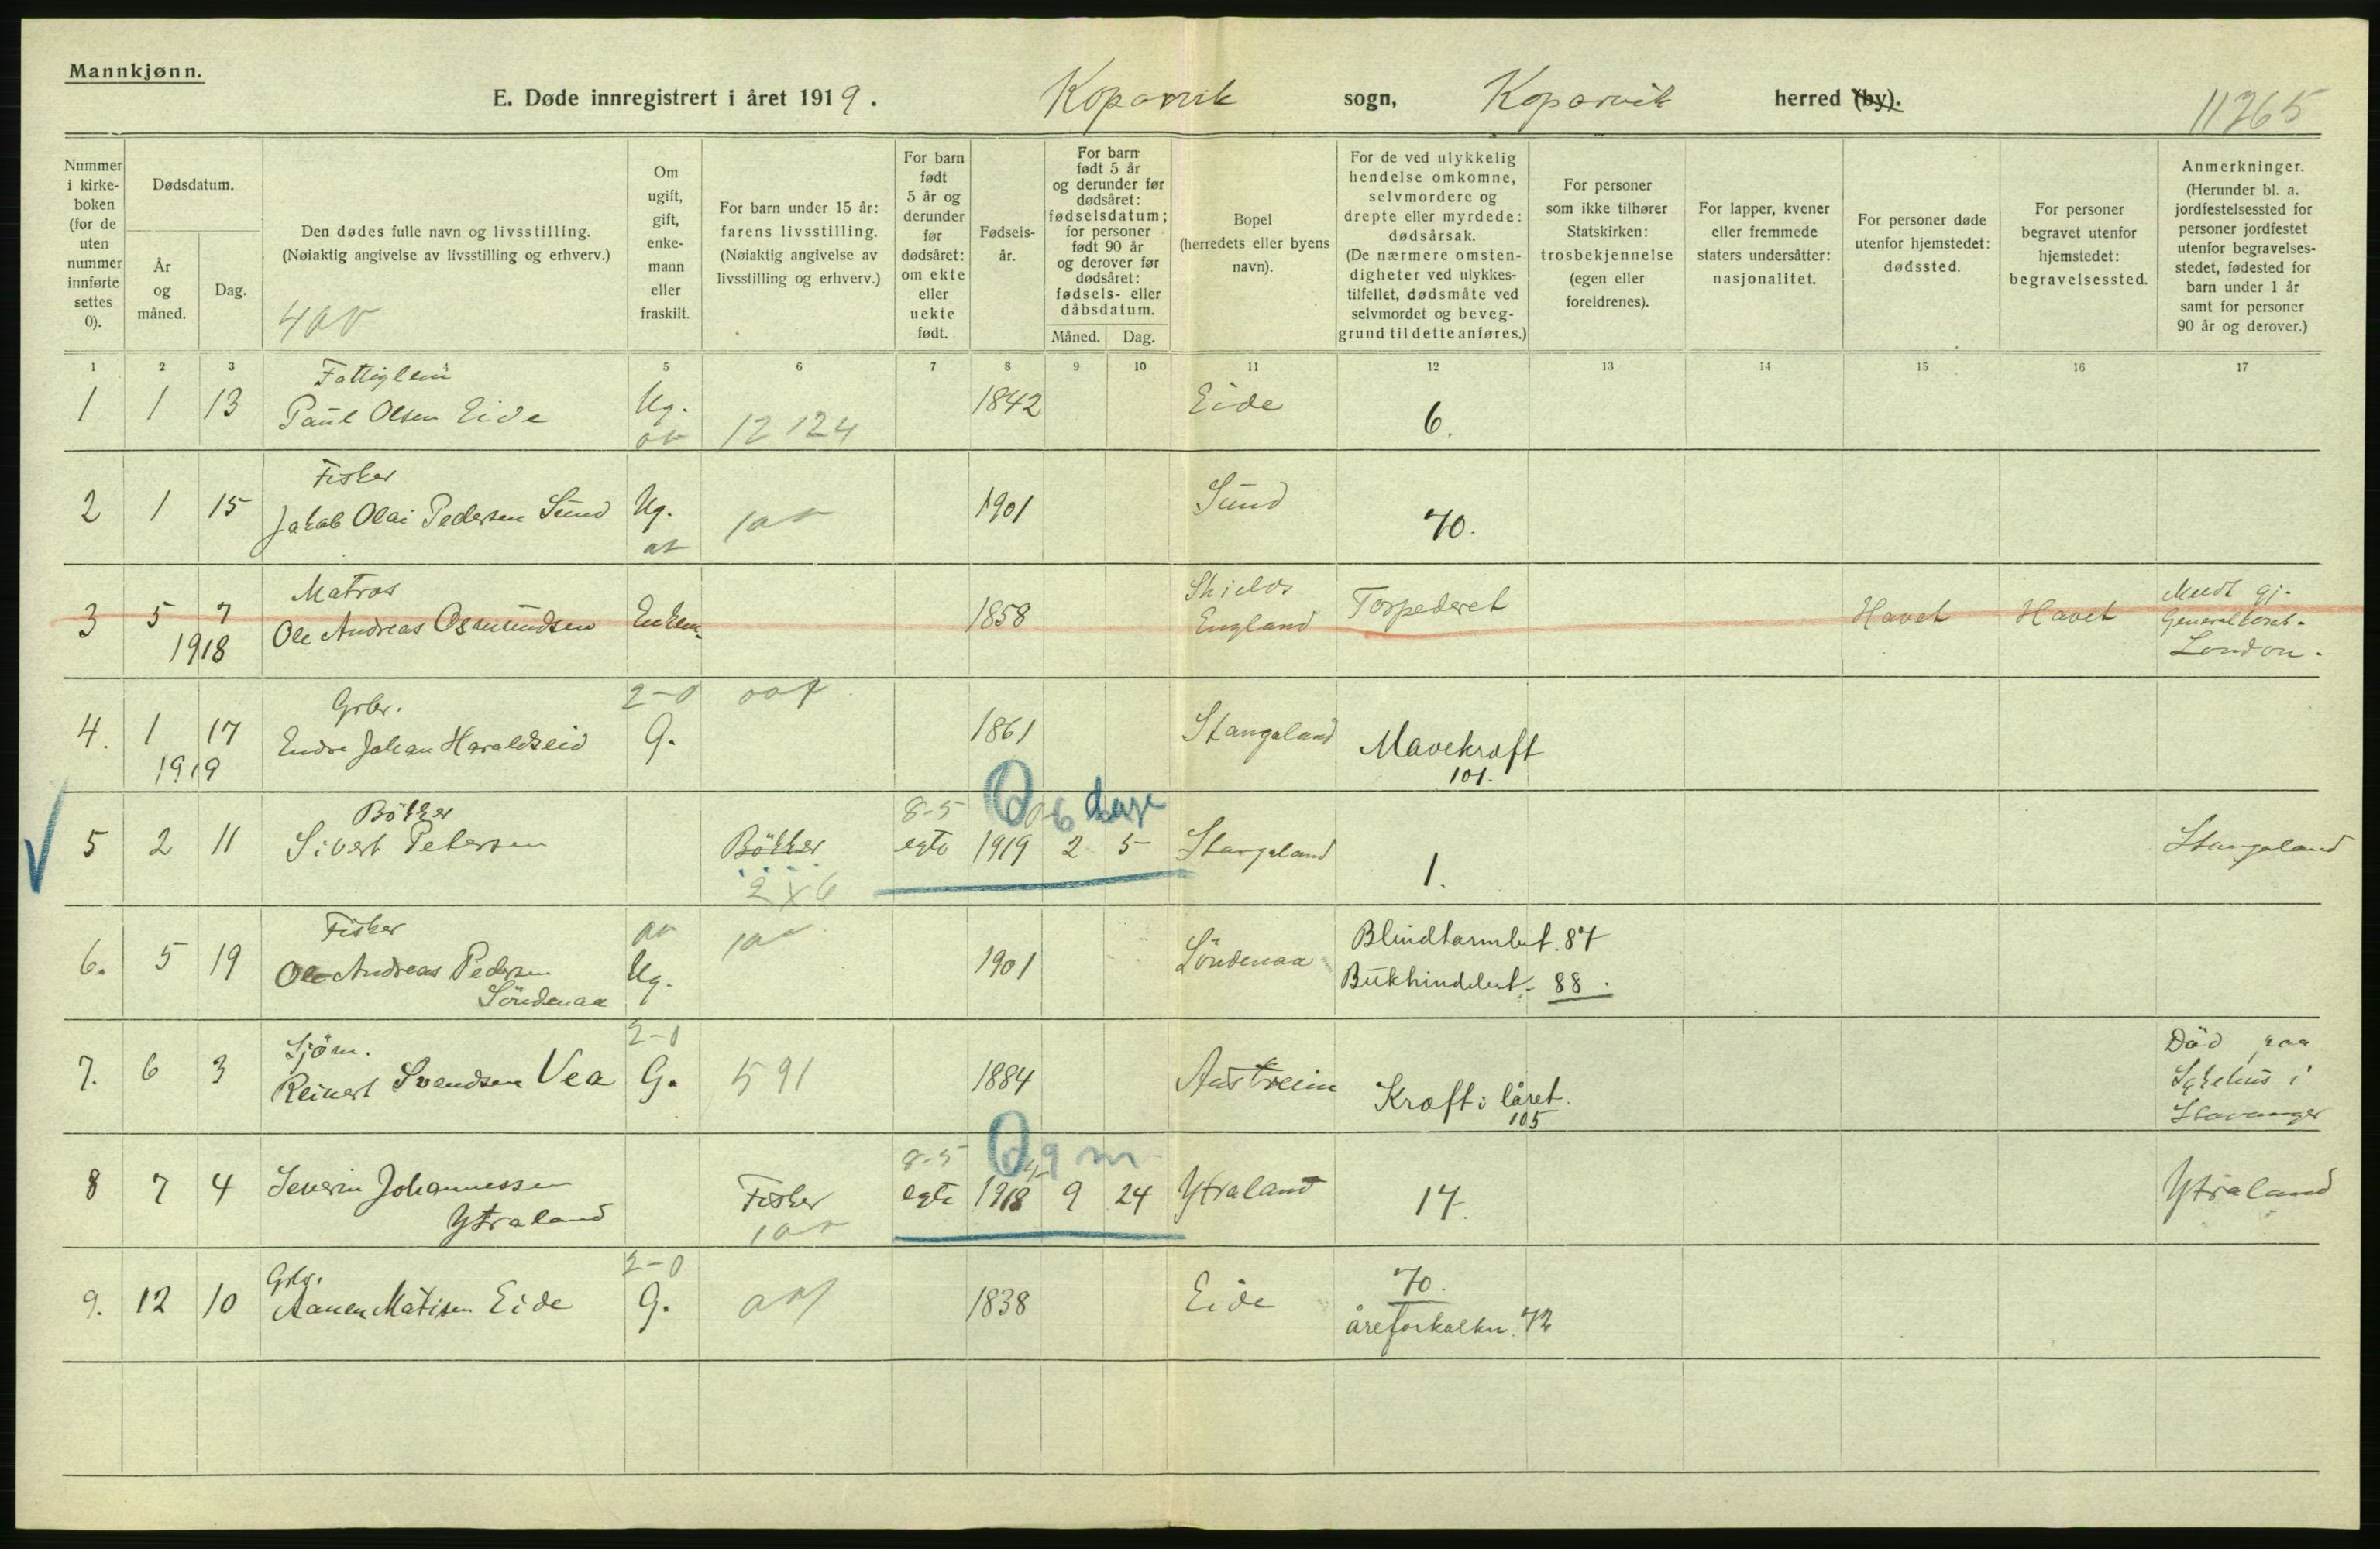 Mannkjønn.
E. Døde innregistrert i året 1919. Kopervik sogn, Kopervik herred (by).
11265
Nummer i kirke-boken (for de uten nummer innførte settes 0).
Dødsdatum.
År og måned.
Dag.
Den dødes fulle navn og livsstilling.
(Nøiaktig angivelse av livsstilling og erhverv.)
Om ugift, gift, enke-mann eller fraskilt.
For barn under 15 år: farens livsstilling.
(Nøiaktig angivelse av livsstilling og erhverv.)
For barn født 5 år og derunder før dødsåret: om ekte eller uekte født.
Fødsels-år.
For barn født 5 år og derunder før dødsåret: fødselsdatum; for personer født 90 år og derover før dødsåret: fødsels- eller dåbsdatum.
Måned. Dag.
Bopel (herredets eller byens navn).
For de ved ulykkelig hendelse omkomne, selvmordere og drepte eller myrdede: dødsårsak.
(De nærmere omsten-digheter ved ulykkes-tilfellet, dødsmåte ved selvmordet og beveg-grund til dette anføres.)
For personer som ikke tilhører Statskirken: trosbekjennelse (egen eller foreldrenes).
For lapper, kvener eller fremmede staters undersåtter: nasjonalitet.
For personer døde utenfor hjemstedet: dødssted.
For personer begravet utenfor hjemstedet: begravelsessted.
Anmerkninger.
(Herunder bl. a. jordfestelsessted for personer jordfestet utenfor begravelses-stedet, fødested for barn under 1 år samt for personer 90 år og derover.)
1 2 3 5 6 7 8 9 10 11 12 13 14 15 16 17
Fattiglem
1 1 13 Paul Olsen Eide Ug. 12124 1842 Eide 6.
Fisker
2 1 15 Jakob Olai Pedersen Sund Ug. 1901 Sund 70.
Matros
3 5 7 Ole Andreas Osmundsen Enkem. 1858 Shields England Torpederet Havet Havet Meldt gj. Generalkons. London.
1918
Grbr. 2-0
4. 1 17 Endre Johan Haraldseid G. 1861 Stangeland Mavekræft
1919 101.
Bøkker 8-5 0 6 dage
5 2 11 Sivert Petersen Bøkker egte 1919 2 5 Stangeland 1. Stangeland
2x6
Fisker
6. 5 19 Ole Andreas Pedersen Söndenaa Ug. 1901 Söndenaa Blindtarmbet. 87
Bukhindebet. 88.
Sjöm. 2-0
7. 6 3 Reinert Svendsen Vea G. 591 1884 Austreim Kræft i låret. 105
Död paa Sykehus i Stavanger
8-5 0 9 m
8 7 4 Severin Johannessen Ytraland Fisker egte 1918 9 24 Ytraland 17. Ytraland
Grbr. 2-0
9. 12 10 Aanen Matisen Eide G. 1838 Eide 70.
åreforkalkn. 72